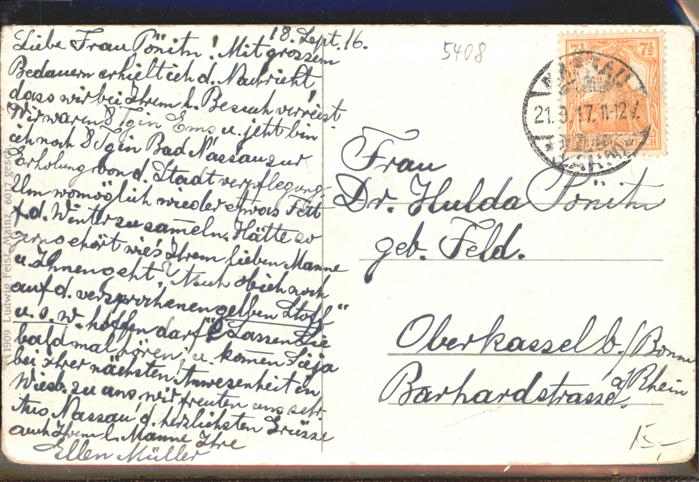 18. Sept. 16.
Liebe Frau Pönitz! Mit grossem
Bedauern erhielt ich d. Nachricht!
dass wir bei Ihrem l. Besuch verreist
Wir waren 8 T in Ems u. jetzt bin
ich noch 8 T in Bad Nassau zur
Erholung von d. Stadtverpflegung
Um womöglich wieder etwas Fett
f. d. Winter zu sameln. Hätte so
gern gehört wie's Ihrem lieben Manne
u. Ihnen geht? Auch ob ich noch
auf d. versprochenen "gelben Stoff"
u. s. w. hoffen darf? Lassen Sie
bald mal hören, u. komen Sie ja
bei Ihrer nächsten Anwesenheit in
Wiesb. zu uns, wir freuten uns sehr
Aus Nassau! d. herzlichsten Grüsse
auch Ihrem l. Manne Ihre
Ellen Müller
5408
7½
NASSAU
21.9.17.11-12V.
* (LAHN) *
Frau
Dr. Hulda Pönitz
geb. Feld.
Oberkassel b/Bonn
a/Rhein
Barhardstrasse.
1909 Ludwig Feist, Mainz 6017 gesch.